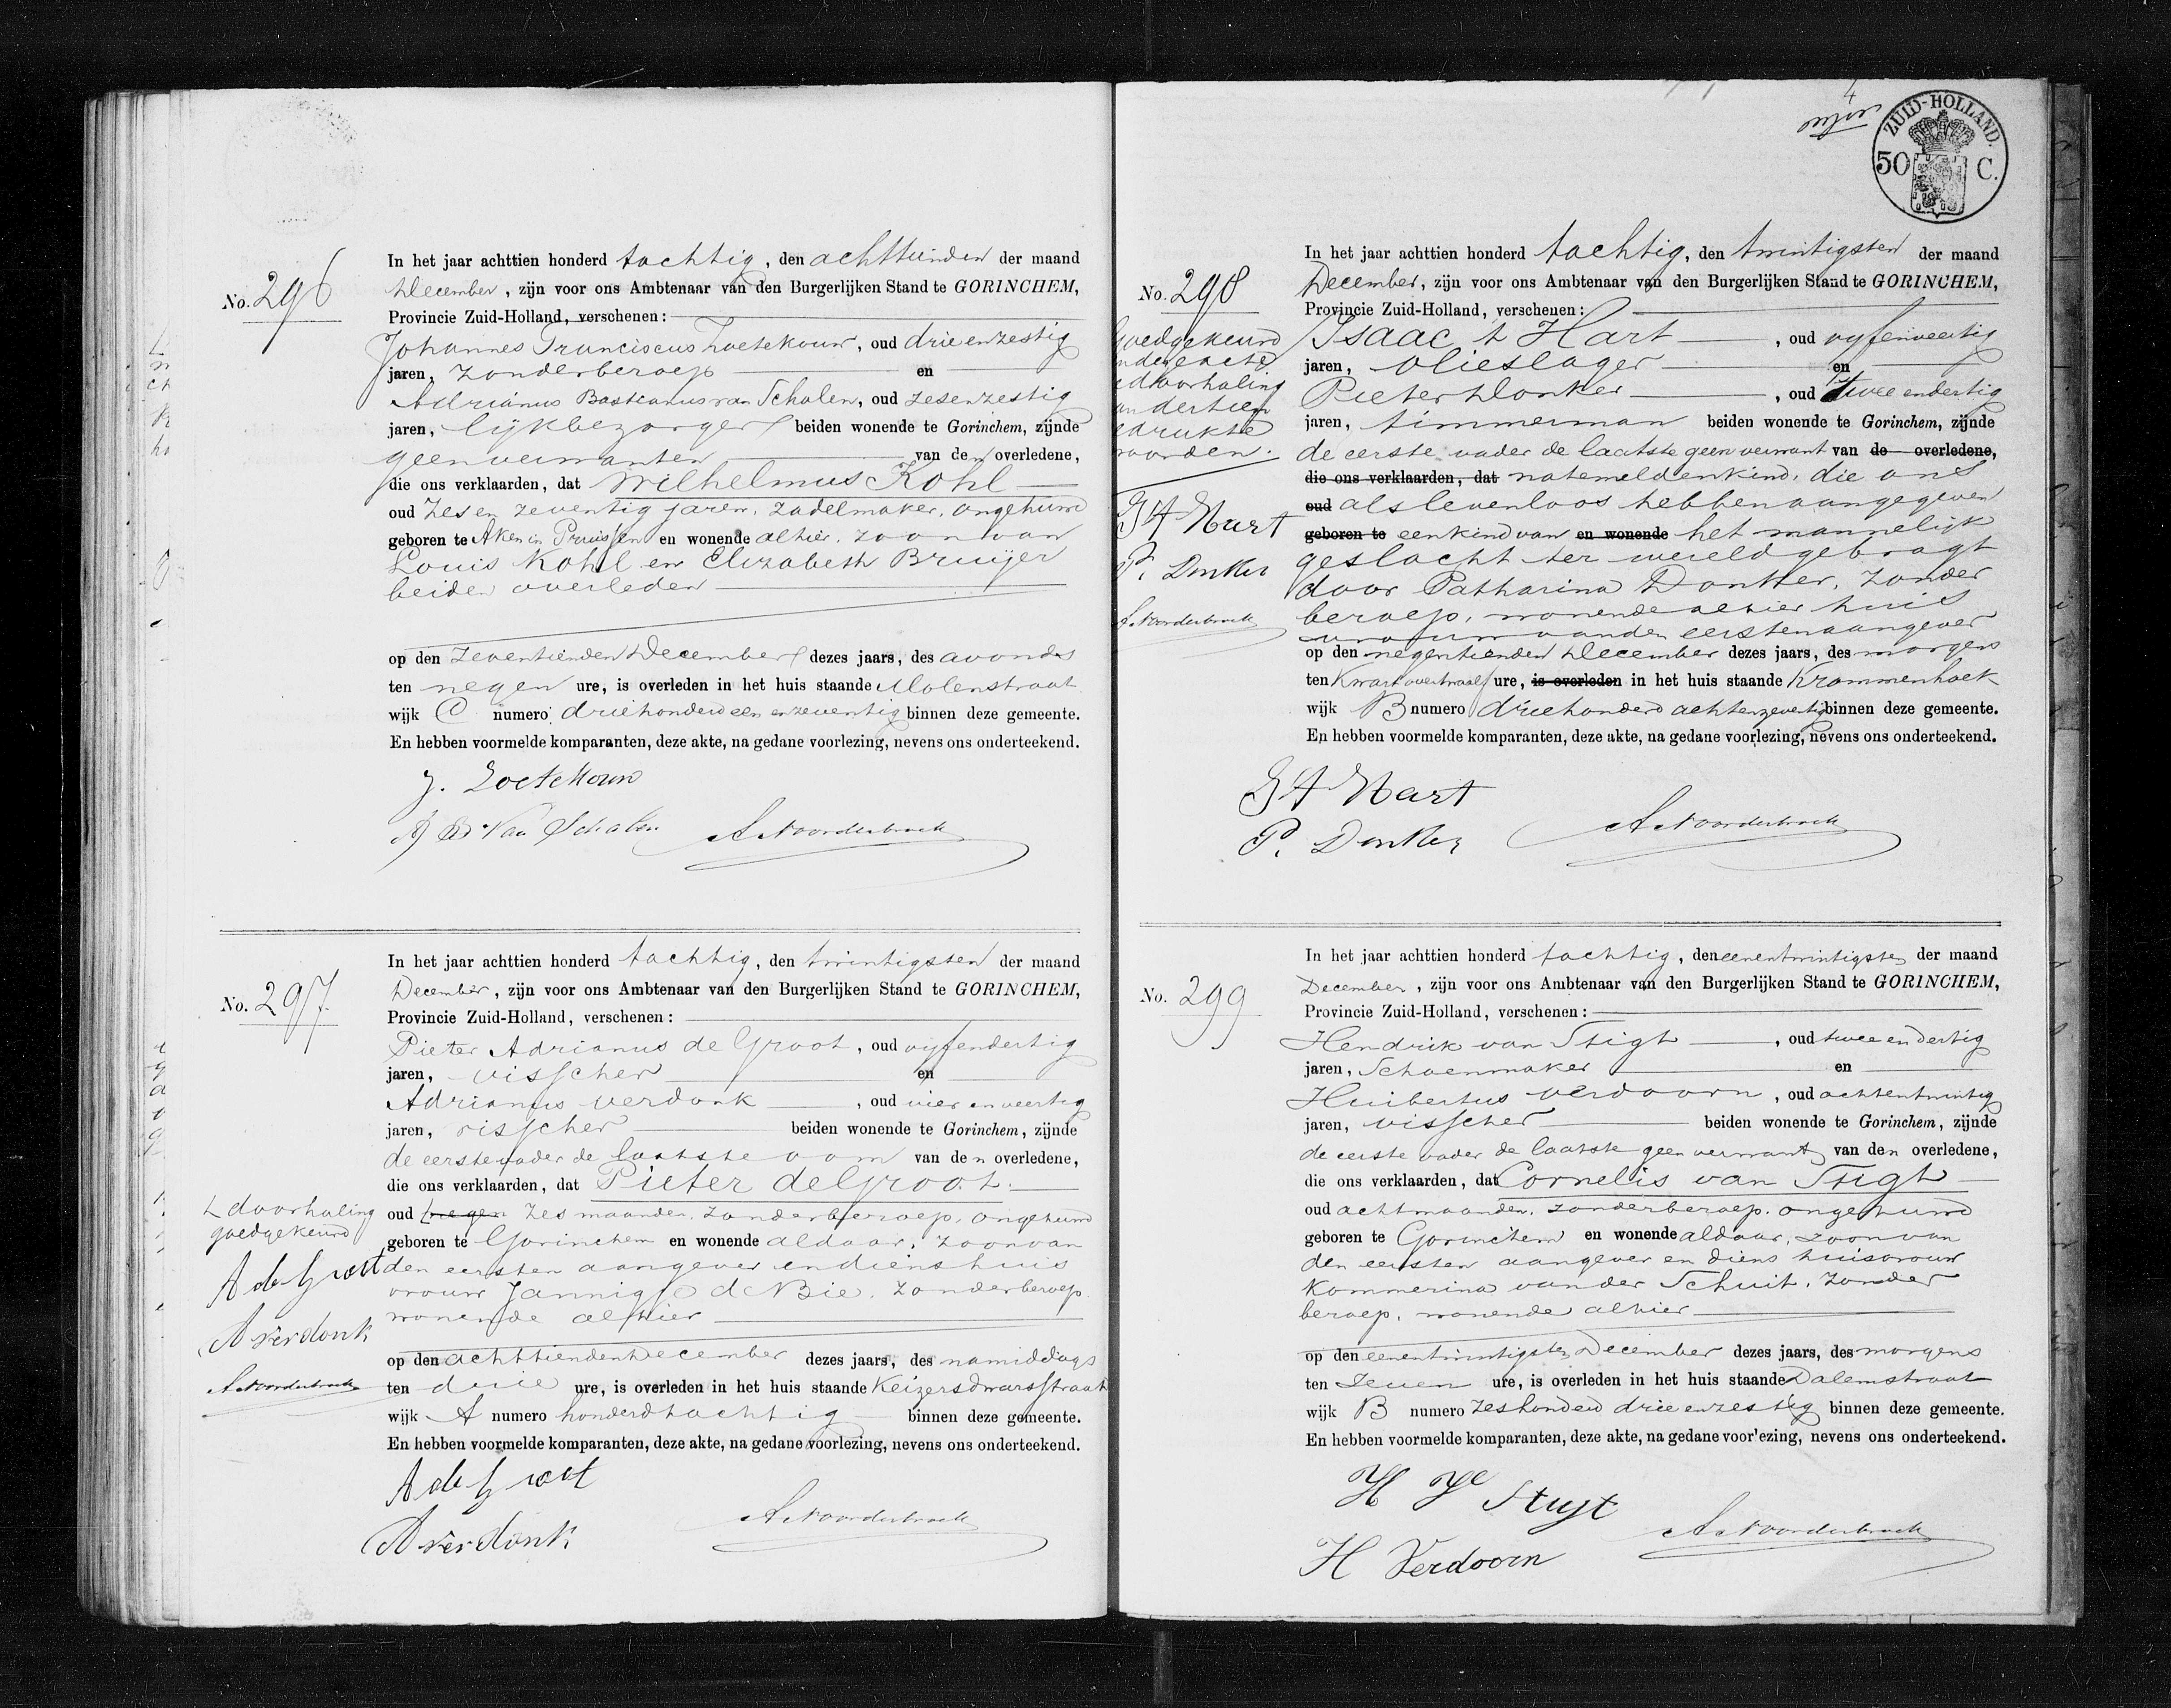 No. 296
In het jaar achttien honderd tachtig, den achttienden der maand
December, zijn voor ons Ambtenaar van den Burgerlijken Stand te GORINCHEM,
Provincie Zuid-Holland, verschenen:
Johannes Franciscus Zoetekouw, oud drie en zestig
jaren, zonder beroep en
Adrianus Bastianus van Schalen, oud zesenzestig
jaren, lijkbezorger beiden wonende te Gorinchem, zijnde
geen verwanten van den overledene,
die ons verklaarden, dat Wilhelmus Kohl
oud zes en zeventig jaren, zadelmaker, ongehuwd
geboren te Aken in Pruissen en wonende alhier, zoon van
Louis Kohl en Elizabeth Bruijer
beiden overleden
op den zeventienden December dezes jaars, des avonds
ten negen ure, is overleden in het huis staande Molenstraat
wijk C numero driehonderd een en zeventig binnen deze gemeente.
En hebben voormelde komparanten, deze akte, na gedane voorlezing, nevens ons onderteekend.
J. Zoetekouw
A B van Schalen A Noorderbroek
No. 297
In het jaar achttien honderd tachtig, den twintigsten der maand
December, zijn voor ons Ambtenaar van den Burgerlijken Stand te GORINCHEM,
Provincie Zuid-Holland, verschenen:
Pieter Adrianus de Groot, oud vijfendertig
jaren, visscher en
Adrianus Verdonk, oud vier en veertig
jaren, visscher beiden wonende te Gorinchem, zijnde
de eerste vader de laatste oom van den overledene,
die ons verklaarden, dat Pieter de Groot
oud negen zes maanden, zonder beroep, ongehuwd
geboren te Gorinchem en wonende aldaar, zoon van
den eersten aangever en diens huis
vrouw Jannigje de Bie, zonder beroep
wonende alhier
op den achttienden December dezes jaars, des namiddags
ten drie ure, is overleden in het huis staande Keizersdwarsstraat
wijk A numero honderd tachtig binnen deze gemeente.
En hebben voormelde komparanten, deze akte, na gedane voorlezing, nevens ons onderteekend.
doorhaling
goedgekeurd
A de Groot
A Verdonk
A Noorderbroek
A de Groot
A Verdonk
A Noorderbroek
ZUID-HOLLAND.
50 C.
No. 298
In het jaar achttien honderd tachtig, den twintigsten der maand
December, zijn voor ons Ambtenaar van den Burgerlijken Stand te GORINCHEM,
Provincie Zuid-Holland, verschenen:
Isaac 't Hart, oud vyfenveertig
jaren, olieslager en
Pieter Donker, oud twee endertig
jaren, timmerman beiden wonende te Gorinchem, zijnde
de eerste vader de laatste geen verwant van de overledene,
die ons verklaarden, dat natemelden kind, die ons
oud als levenloos hebben aangegeven
geboren te een kind van en wonende het mannelijk
geslacht ter wereld gebragt
door Catharina Donker, zonder
beroep, wonende alhier huis
vrouw van den eersten aangever
op den negentienden December dezes jaars, des morgens
ten kwart over twaalf ure, is overleden in het huis staande Krommenhoek
wijk B numero driehonderd achtenzeventig binnen deze gemeente.
En hebben voormelde komparanten, deze akte, na gedane voorlezing, nevens ons onderteekend.
goedgekeurd
doorhaling
van dertien
gedrukte
woorden.
I 't Hart
P. Donker
A Noorderbroek
I 't Hart
P. Donker
A Noorderbroek
No. 299
In het jaar achttien honderd tachtig, den eenentwintigsten der maand
December, zijn voor ons Ambtenaar van den Burgerlijken Stand te GORINCHEM,
Provincie Zuid-Holland, verschenen:
Hendrik van Stigt, oud twee en dertig
jaren, Schoenmaker en
Huibertus Verdoorn, oud achtentwintig
jaren, visscher beiden wonende te Gorinchem, zijnde
de eerste vader de laatste geen verwant van den overledene,
die ons verklaarden, dat Cornelis van Stigt
oud acht maanden, zonder beroep, ongehuwd
geboren te Gorinchem en wonende aldaar, zoon van
den eersten aangever en diens huisvrouw
Kommerina van der Schuit, zonder
beroep, wonende alhier
op den eenentwintigsten December dezes jaars, des morgens
ten zeven ure, is overleden in het huis staande Dalemstraat
wijk B numero zeshonderd drie enzestig binnen deze gemeente.
En hebben voormelde komparanten, deze akte, na gedane voorlezing, nevens ons onderteekend.
H Stigt
H Verdoorn
A Noorderbroek